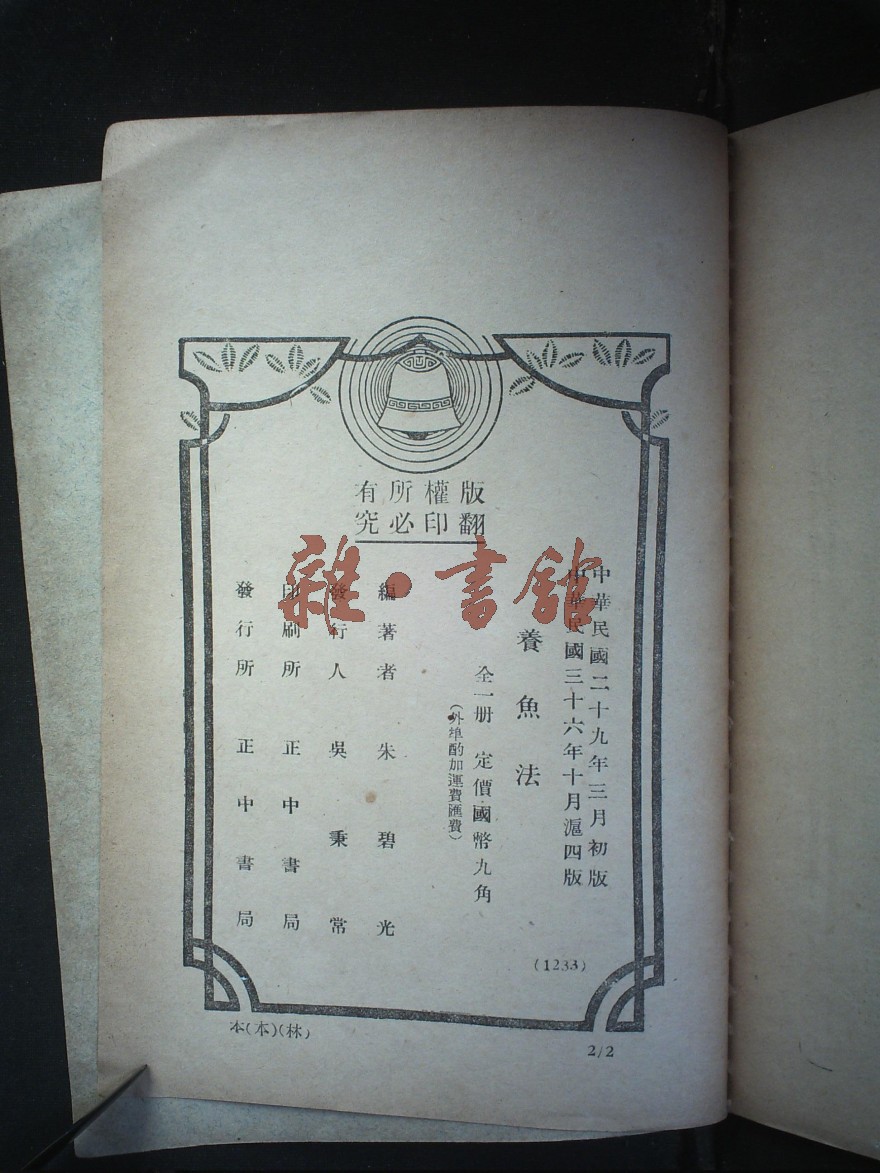 版權所有
翻印必究
中華民國二十九年三月初版
中華民國三十六年十月滬四版
養魚法
全一册 定價國幣九角
(外埠酌加運費匯費)
編著者 朱碧光
發行人 吳秉常
印刷所 正中書局
發行所 正中書局
(1233)
本(本)(林)
2/2
雜·書館